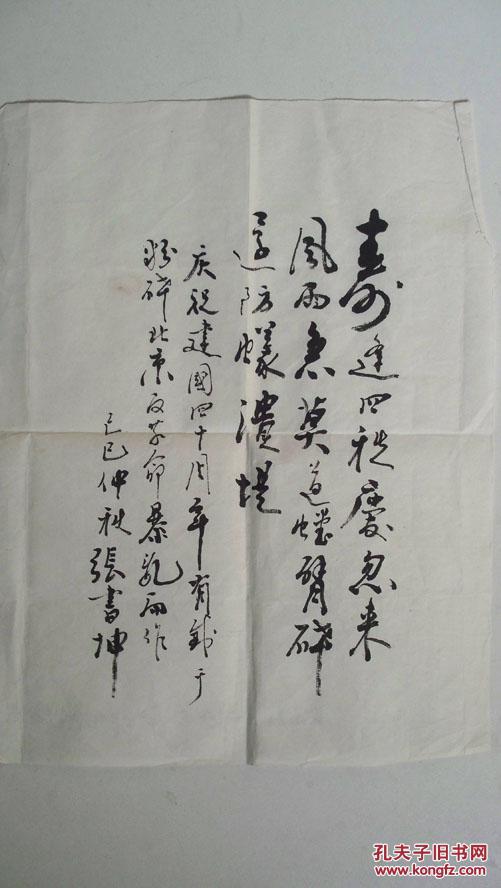 寿逢四秩慶忽来
風雨急莫道螳臂碎
還防蟻潰堤
庆祝建國四十周年有感于
粉碎北京反革命暴乱而作
己巳仲秋張書坤
孔夫子旧书网
www.kongfz.com